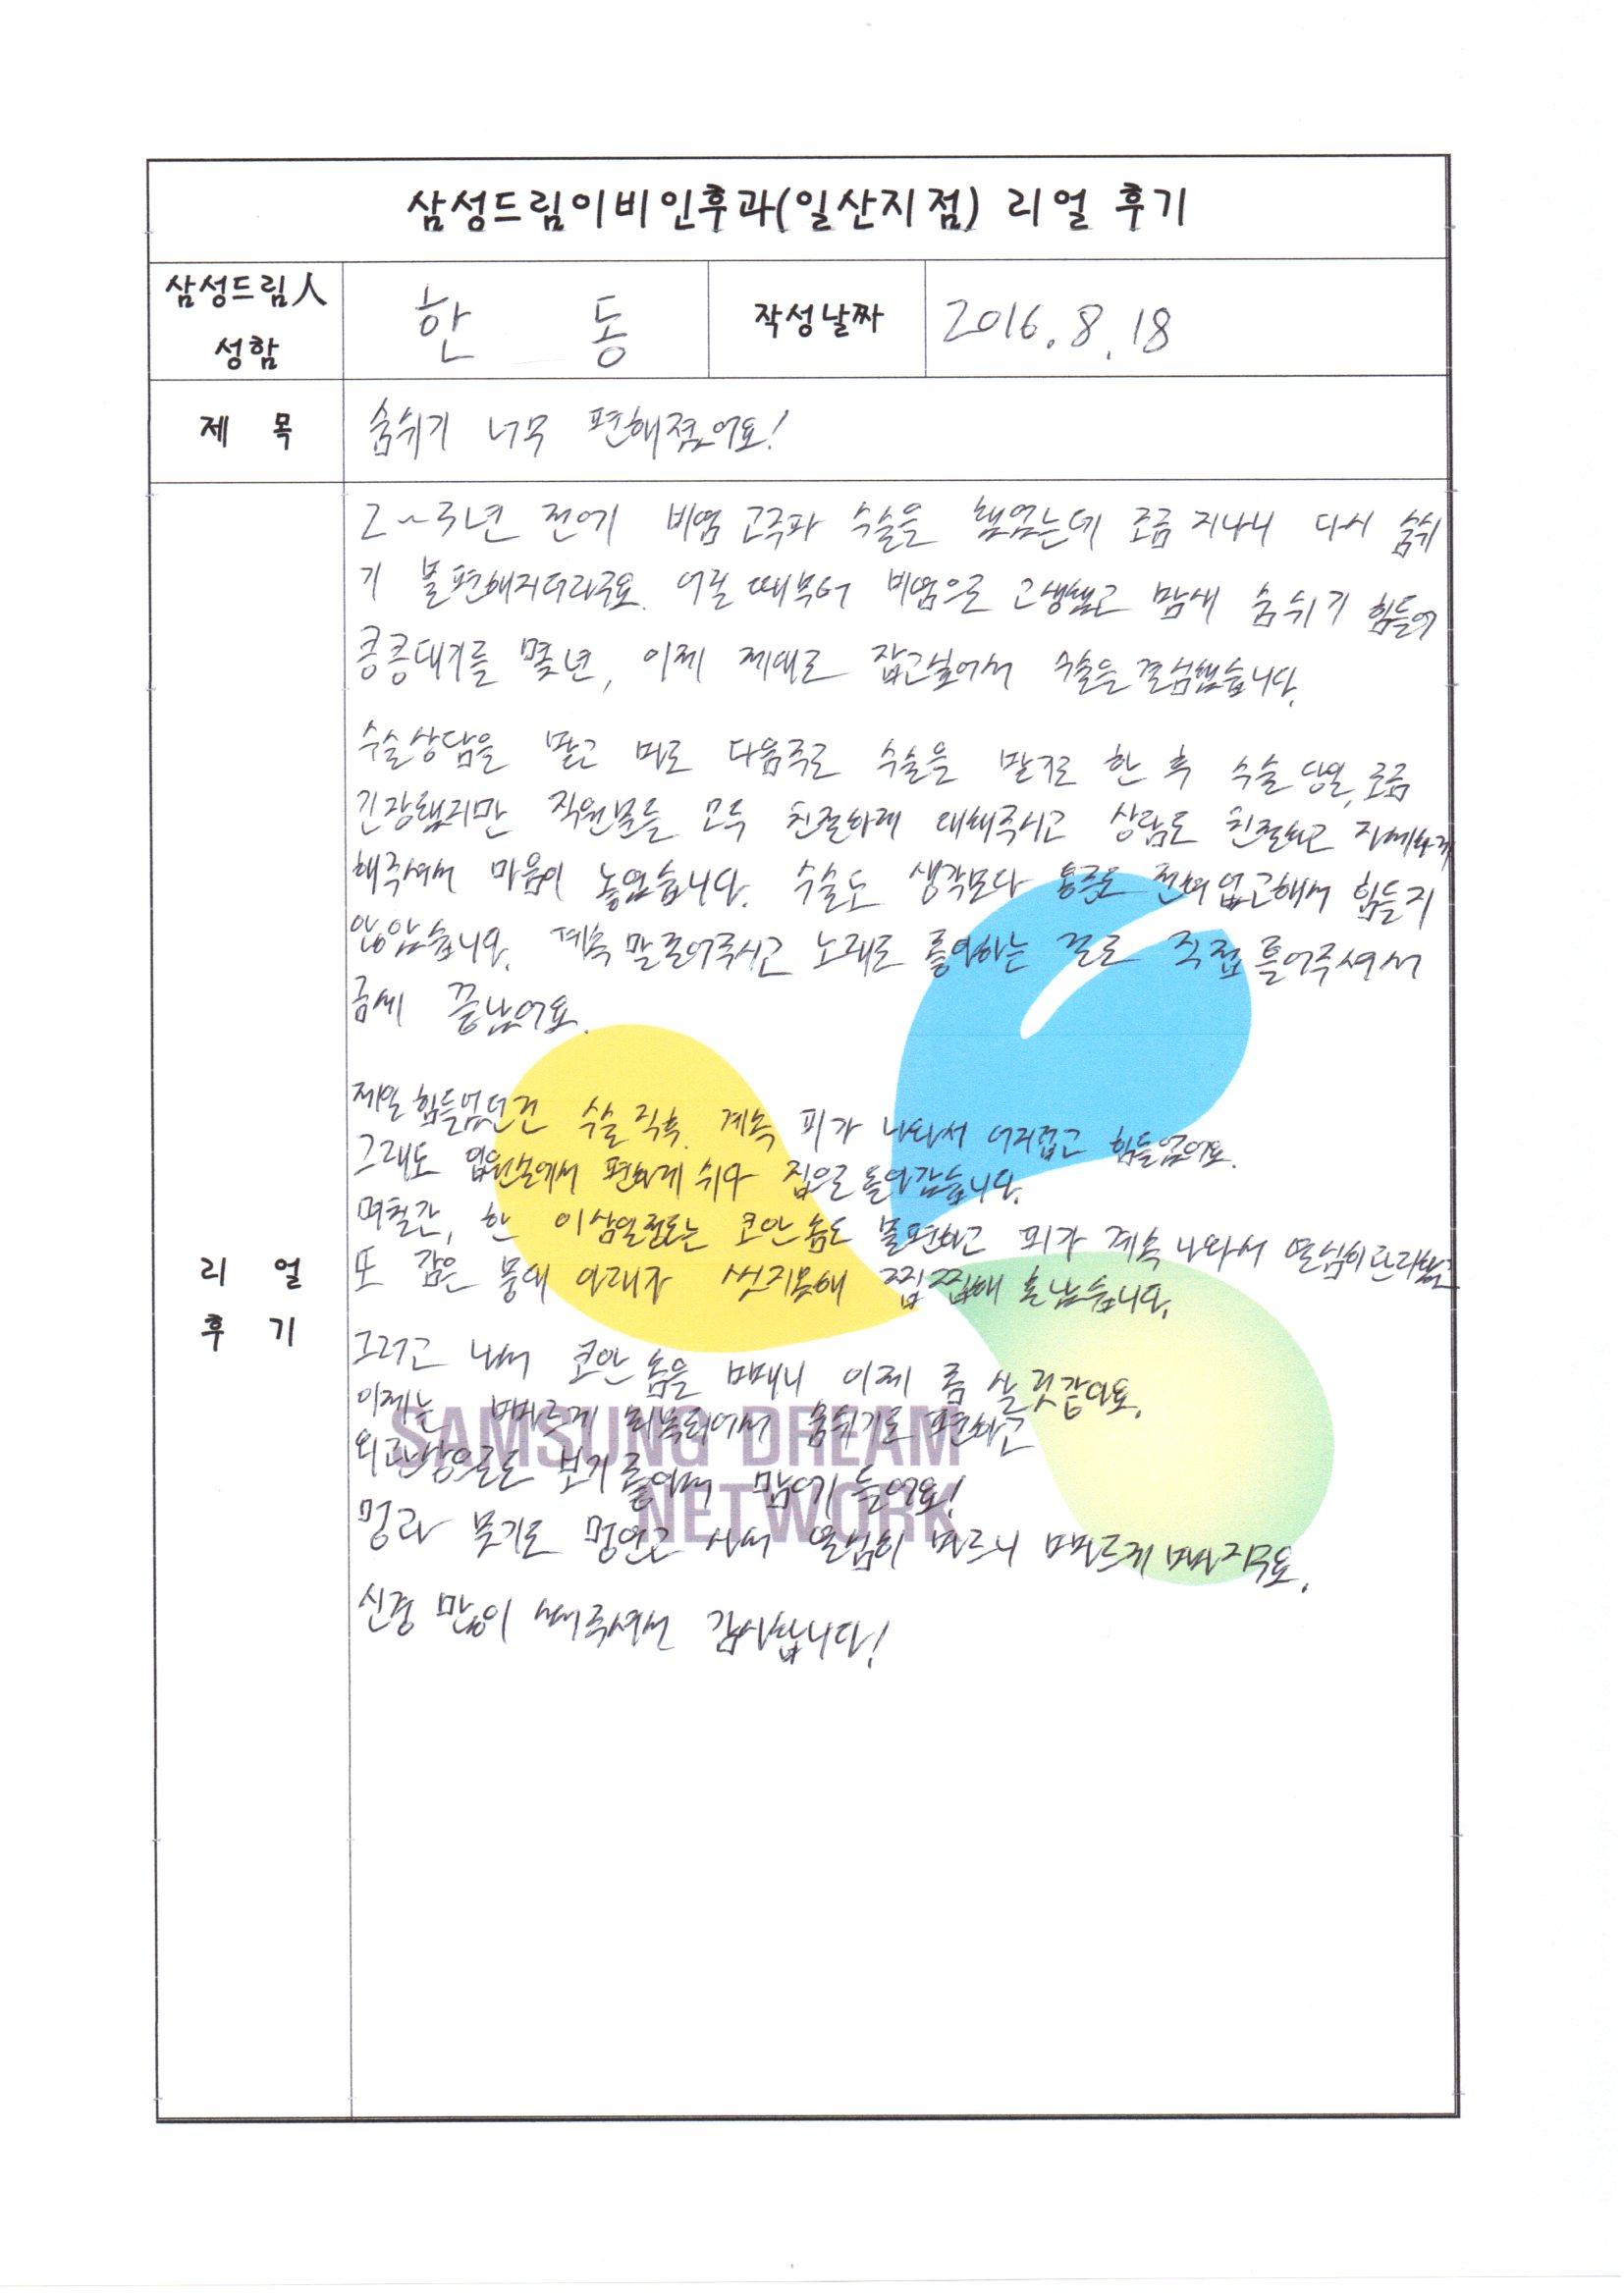 삼성드림이비인후과(일산지점) 리얼 후기
삼성드림人
성함
한 동
작성날짜
2016.8.18
제 목
숨쉬기 너무 편해졌어요!
리 얼
후 기
2~3년 전에 비염 고주파 수술을 했었는데 조금 지나니 다시 숨쉬
기 불편해지더라구요. 어릴 때부터 비염으로 고생했고 밤새 숨쉬기 힘들어
킁킁대기를 몇년, 이제 제대로 잡고싶어서 수술을 결심했습니다.
수술상담을 받고 바로 다음주로 수술을 받기로 한 후 수술 당일, 조금
긴장했지만 직원분들 모두 친절하게 대해주시고 상담도 친절하고 자세하게
해주셔서 마음이 놓였습니다. 수술도 생각보다 통증도 전혀 없고해서 힘들지
않았습니다. 계속 말걸어주시고 노래도 좋아하는 걸로 직접 틀어주셔서
금세 끝났어요.
제일 힘들었던건 수술 직후. 계속 피가 나와서 어지럽고 힘들었어요.
그래도 입원실에서 편하게 쉬다 집으로 돌아갔습니다.
며칠간, 한 이삼일정도는 코안 솜도 불편하고 피가 계속 나와서 열심히 관리했고
또 감은 붕대 아래가 씻지못해 찝찝해 혼났습니다.
그러고 나서 코안 솜을 빼내니 이제 좀 살 것같아요.
이제는 빠르게 회복되어서 숨쉬기도 편하고
외관상으로도 보기 좋아져 맘에 들어요!
멍과 붓기도 멍연고 사서 열심히 바르니 빠르게 빠지구요.
신경 많이 써주셔서 감사합니다!
SAMSUNG DREAM
NETWORK